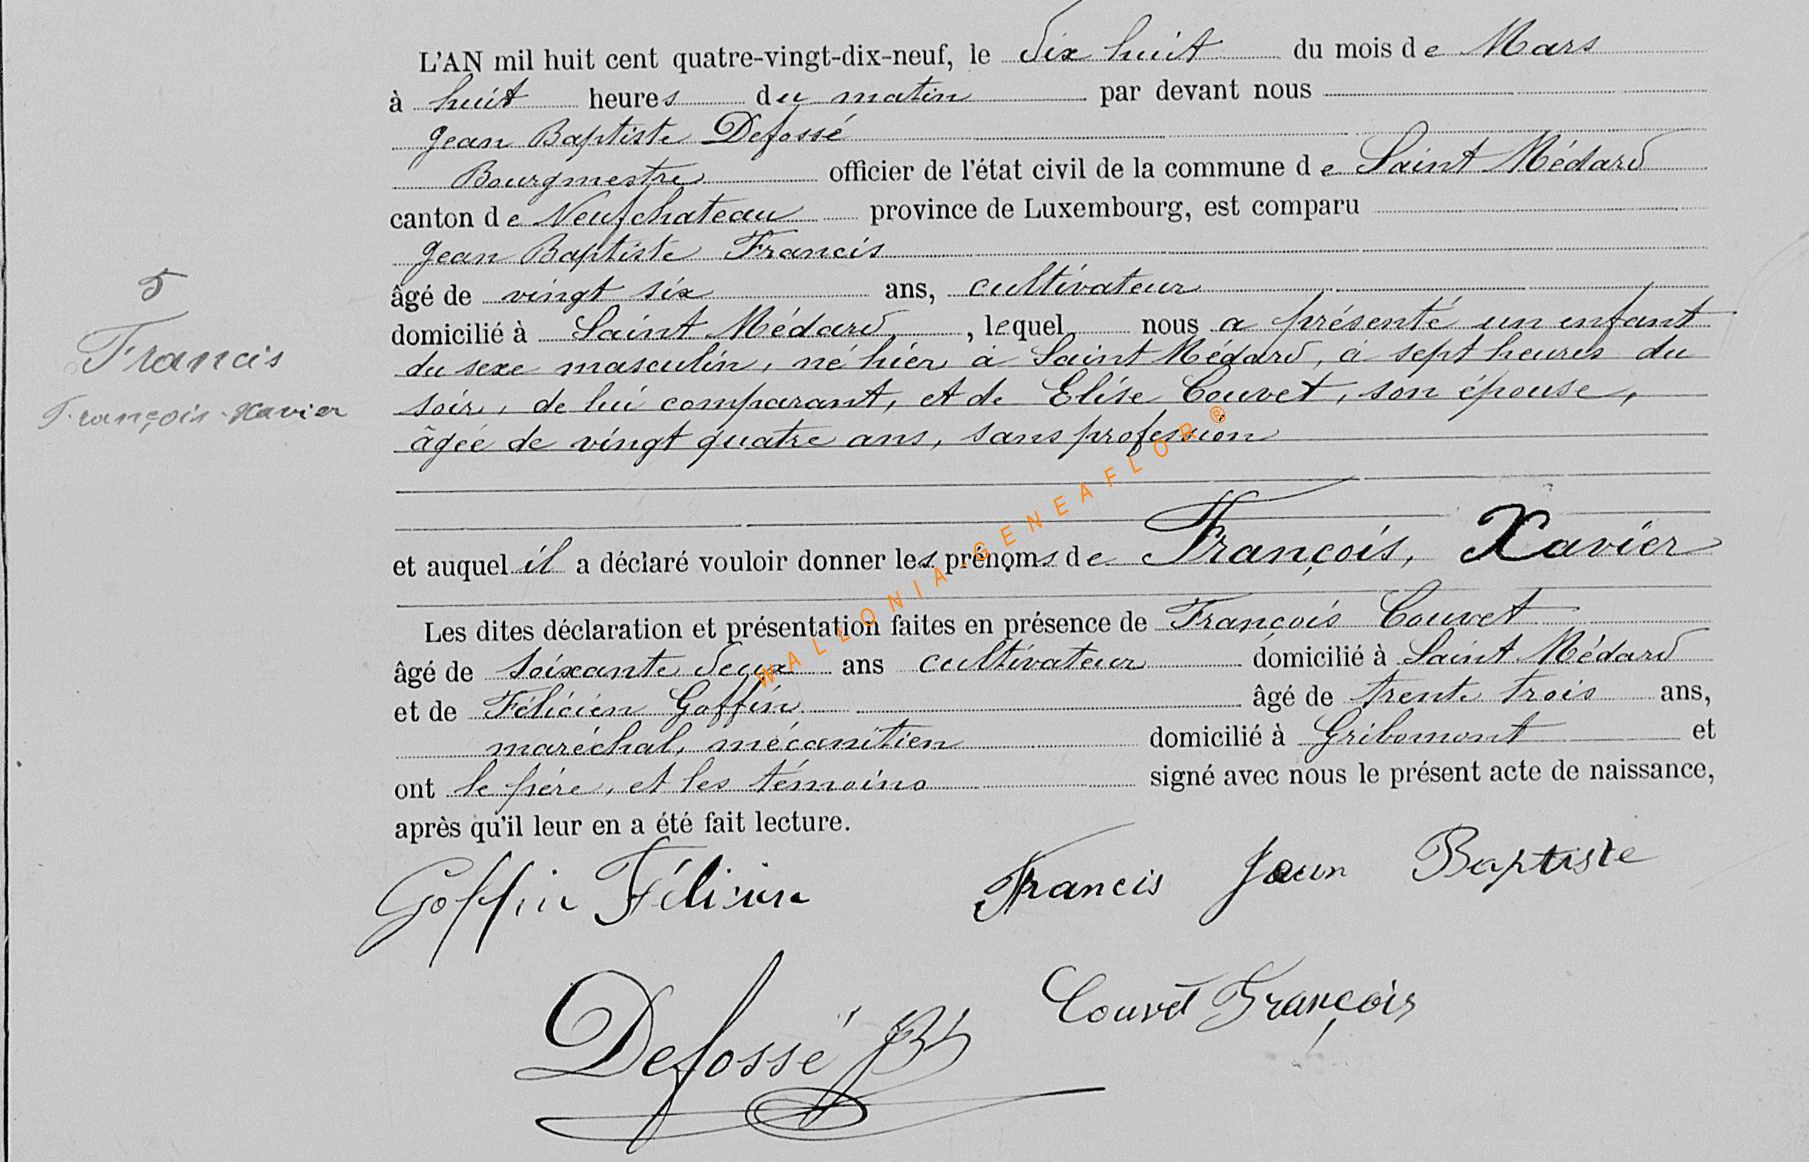 L'AN mil huit cent quatre-vingt-dix-neuf, le dix huit du mois de Mars
à huit heures du matin par devant nous
Jean Baptiste Defossé
Bourgmestre officier de l'état civil de la commune de Saint Médard
canton de Neufchateau province de Luxembourg, est comparu
Jean Baptiste Francis
âgé de vingt six ans, cultivateur
domicilié à Saint Médard, lequel nous a présenté un enfant
du sexe masculin, né hier à Saint Médard, à sept heures du
soir, de lui comparant, et de Elise Couvet, son épouse,
âgée de vingt quatre ans, sans profession
et auquel il a déclaré vouloir donner les prénoms de François, Xavier
Les dites déclaration et présentation faites en présence de François Couvet
âgé de soixante deux ans cultivateur domicilié à Saint Médard
et de Félicien Goffin âgé de trente trois ans,
maréchal, mécanitien domicilié à Gribomont et
ont le père, et les témoins signé avec nous le présent acte de naissance,
après qu'il leur en a été fait lecture.
5
Francis
François-Xavier
Goffin Félicien
Francis Jean Baptiste
Defossé JB
Couvet François
WALLONIA-GENEAFLOR®